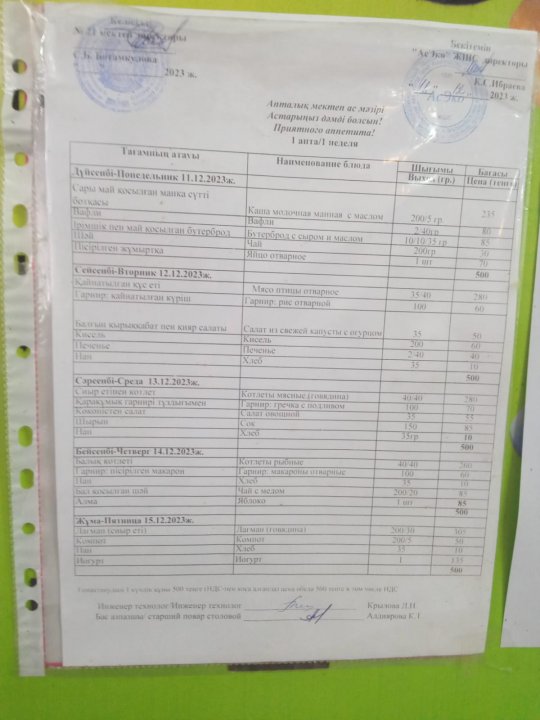 Келісемін
№ 21 мектеп директоры
С.Б. Ботамкулова
2023 ж.
Бекітемін
"Ас Эко" ЖШС директоры
К.С.Ибраева
2023 ж.
Ас Эко
Апталық мектеп ас мәзірі
Астарыңыз дәмді болсын!
Приятного аппетита!
1 апта/1 неделя
Тағамның атауы Наименование блюда Шығымы Выход (гр.) Бағасы Цена (тенге)
Дүйсенбі-Понедельник 11.12.2023ж.
Сары май қосылған манка сүтті ботқасы Каша молочная манная с маслом 200/5 гр. 235
Вафли Вафли 2/40гр 80
Ірімшік пен май қосылған бутерброд Бутерброд с сыром и маслом 10/10/35 гр 85
Шай Чай 200гр 30
Пісірілген жұмыртқа Яйцо отварное 1 шт 70
500
Сейсенбі-Вторник 12.12.2023ж.
Қайнатылған құс еті Мясо птицы отварное 35/40 280
Гарнир: қайнатылған күріш Гарнир: рис отварной 100 60
Балғын қырыққабат пен қияр салаты Салат из свежей капусты с огурцом 35 50
Кисель Кисель 200 60
Печенье Печенье 2/40 40
Нан Хлеб 35 10
500
Сәрсенбі-Среда 13.12.2023ж.
Сиыр етінен котлет Котлеты мясные (говядина) 40/40 280
Қарақұмық гарнирі тұздығымен Гарнир: гречка с подливом 100 70
Көкөністен салат Салат овощной 35 55
Шырын Сок 150 85
Нан Хлеб 35гр 10
500
Бейсенбі-Четверг 14.12.2023ж.
Балық котлеті Котлеты рыбные 40/40 260
Гарнир: пісірілген макарон Гарнир: макароны отварные 100 60
Нан Хлеб 35 10
Бал қосылған шай Чай с медом 200/20 85
Алма Яблоко 1 шт 85
500
Жұма-Пятница 15.12.2023ж.
Лагман (сиыр еті) Лагман (говядина) 200/30 305
Компот Компот 200/5 50
Нан Хлеб 35 10
Йогурт Йогурт 1 135
500
Инженер технолог/Инженер технолог Крылова Л.Н.
Бас аспазшы/ старший повар столовой Алдиярова К.Т.